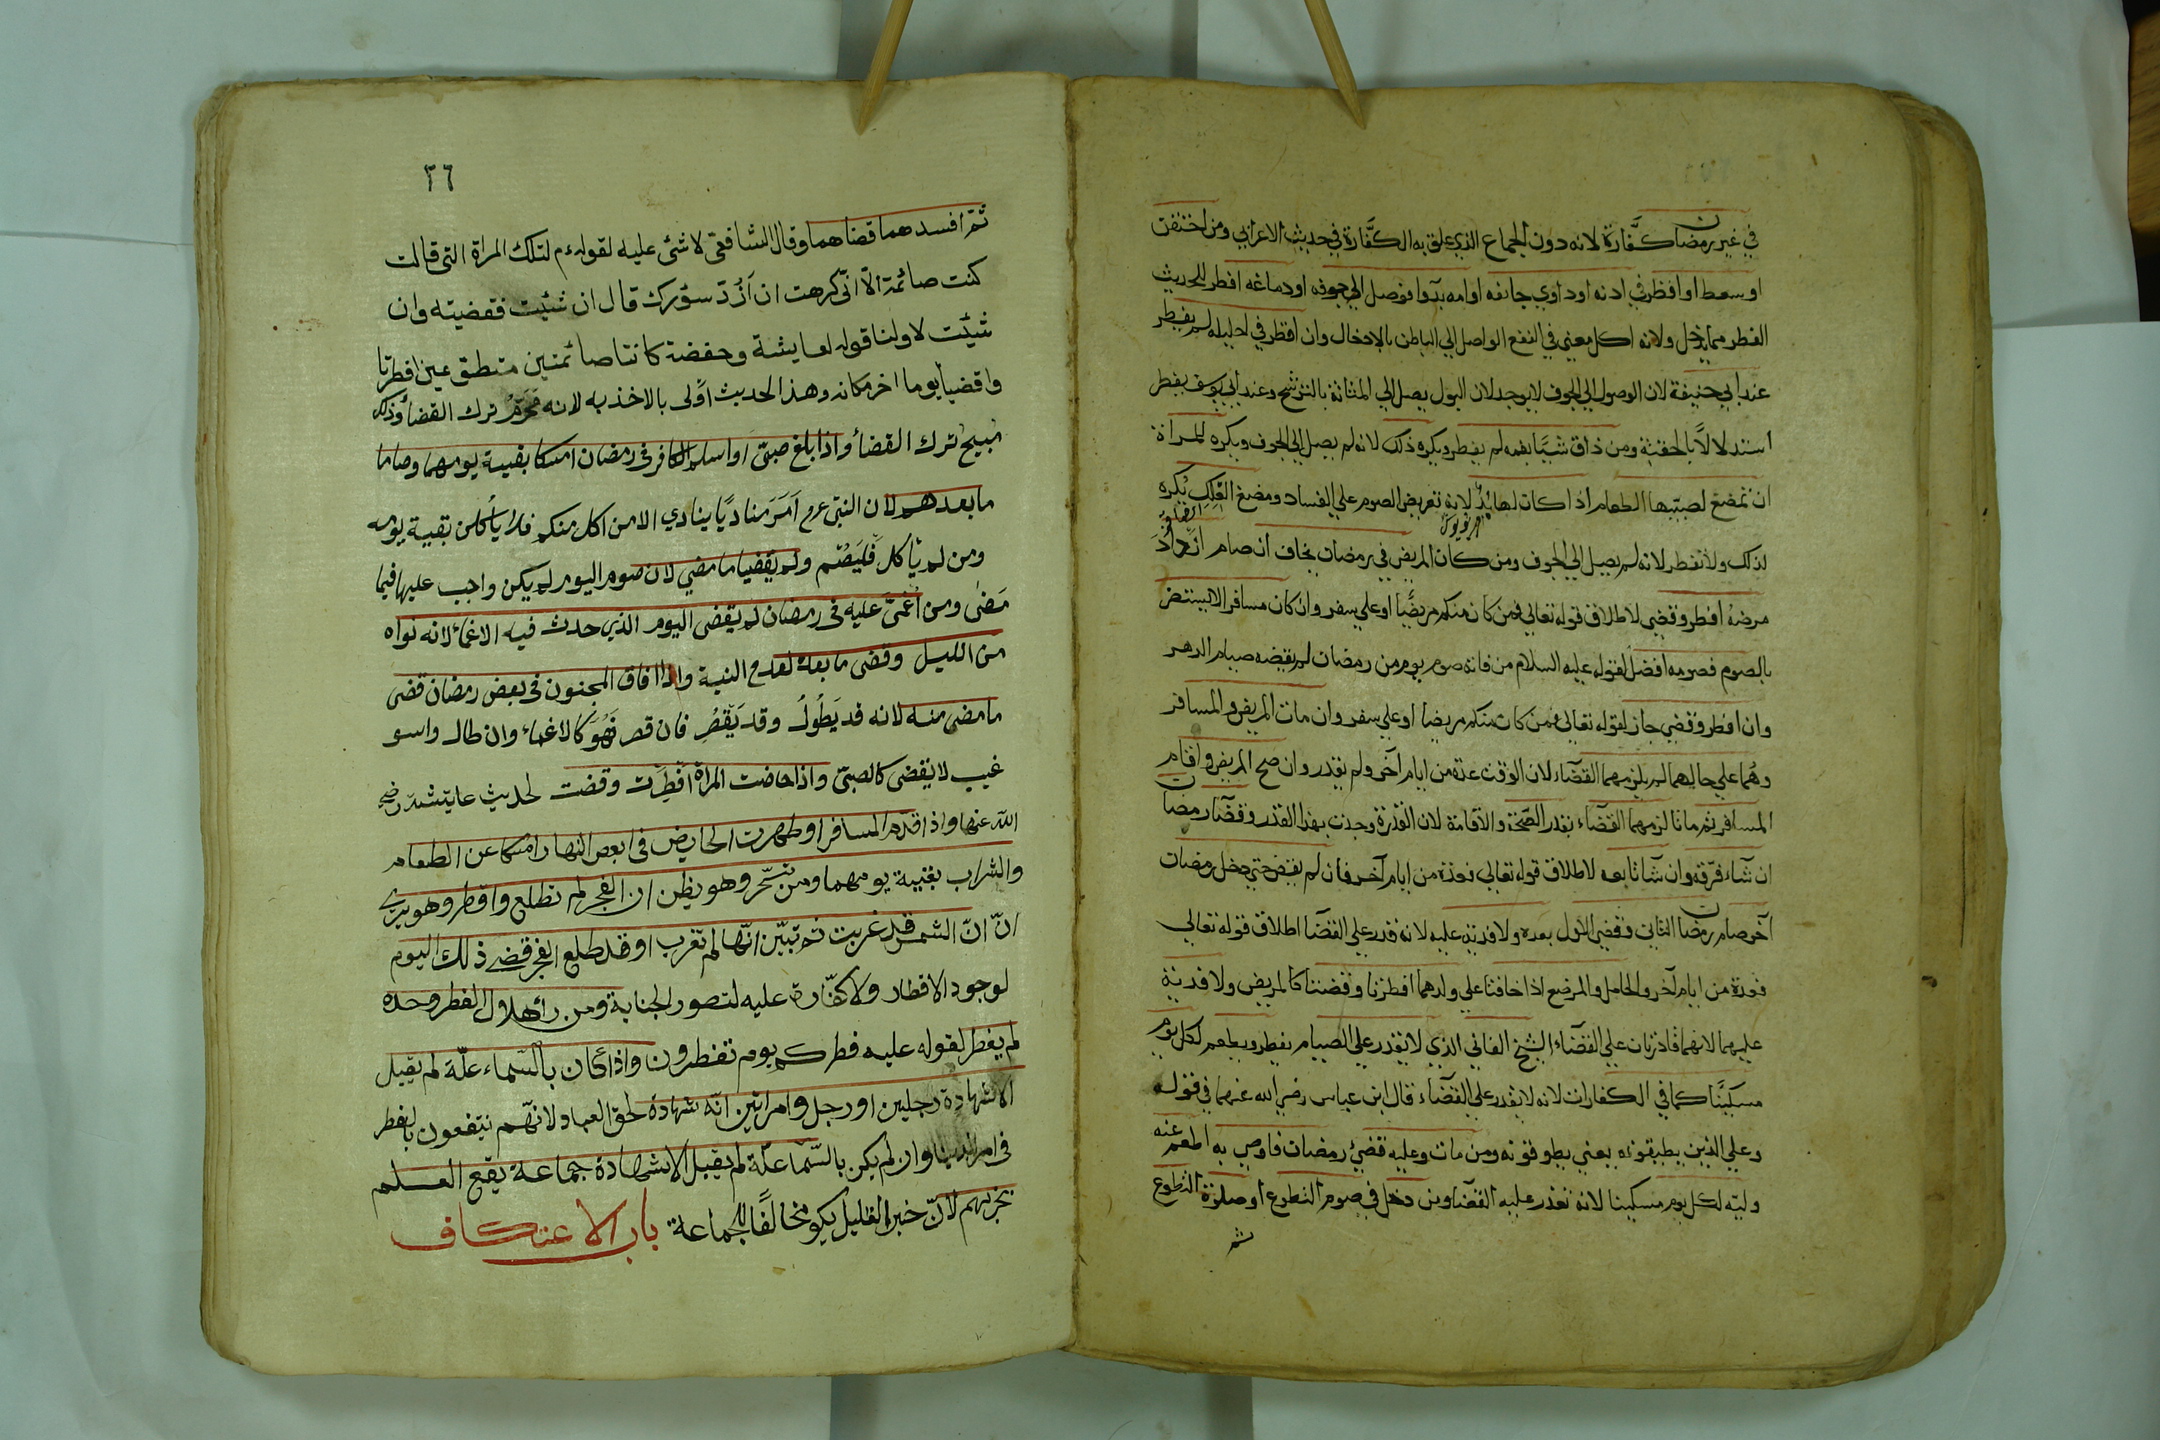 في غير رمضان كفّارة لانه دون الجماع الذي علق به الكفّارة في حديث الاعرابي ومن احتقن
او سعط او اقطر في اذنه او داوي جائفه او امه بدوا فوصل الي جوفه او دماغه افطر للحديث
الفطر مما يدخل ولانه اكل معني في النفع الواصل الي الباطن بالادخال وان اقطر في احليله لم يفطر
عند ابي حنيفة لان الوصول الي الجوف لايوجد لان البول يصل الي المثانة بالترشح وعند ابي يوسف يفطر
استدلالاً بالحقنة ومن ذاق شيًا بفمه لم يفطر ويكره ذلك لانه لم يصل الي الجوف ويكره للمراة
ان تمضغ لصبيّها الطعام اذا كان لها بدّ لانه تعريض الصوم علي الفساد ومضغ العلك يُكره
لذلك ولا تفطر لانه لم يصل الي الجوف ومن كان المريض في رمضان يخاف ان صام ازداد
مرضهُ افطر وقضي لاطلاق قوله تعالي فمن كان منكم مريضًا او علي سفر وان كان مسافر الا يستضر
بالصوم فصومه افضل لقوله عليه السلام من فاته صوم يوم من رمضان لم يقضه صيام الدهر
وان افطر وقضي جاز لقوله تعالي فمن كان منكم مريضا او علي سفر وان مات المريض والمسافر
وهُما علي حالهما لم يلزمهما القضآء لان الوقت عدة من ايام آخر ولم يقدر وان صح المريض واقام
المسافر ثم ماتا لزمهما القضآء بقدر الصّحة والاقامة لان القدرة وجدت بهذا القدر وقضآء رمضان
ان شآء فرّقه وان شآ تابعه لاطلاق قوله تعالي فعدة من ايام آخر فان لم يقض حتي دخل رمضان
آخر صام رمضان الثاني وقضي الاول بعده ولا فدية عليه لانه قدر علي القضآ اطلاق قوله تعالي
فعدة من ايام آخر والحامل والمرضع اذا خافتا علي ولدهما افطرتا وقضتا كالمريض ولا فدية
عليهما لانهما قادرتان علي القضآء الشيخ الفاني الذي لا يقدر علي الصيام يفطر ويطعم لكل يوم
مسكينًا كما في الكفارات لانه لا يقدر علي القضآء قال ابن عباس رضي الله عنهما في قوله
وعلي الذين يطيقونه يعني يطوقونه ومن مات وعليه قضيُ رمضان فاوصي به اطعم عنه
وليّه لكل يوم مسكينا لانه تعذر عليه القضآ ومن دخل في صوم التطوع او صلوة التطوع
ثم
٣٦
ثمّ افسدهما قضاهما وقال الشافعيّ لا شئ عليه لقوله م لتلك المراة التي قالت
كنت صائمة الّا انّي كرهت ان اَرُدّ سؤرك قال ان شئت فقضيته وان
شئت لا ولنا قوله لعايشة وحفضة كانتا صائمتين متطوعين افطرتا
واقضيا يوما اخر مكانه وهذا الحديث اَولي بالاخذ به لانه مُحَرّمُ ترك القضأ وذلك
مبيح ترك القضأ واذا بلغ صبيّ او اسلم الكافر في رمضان امسكا بقيية يومهما وصاما
ما بعد هم لان النبيّ عم اَمَرَ مناديًا ينادي الا من اكل منكم فلا يأكلن بقية يومه
ومن لم يأكل فليَصُم ولم يقضيا ما مضي لان صوم اليوم لم يكن واجب عليها فيما
مَضيٰ ومن اُغميَ عليه في رمضان لم يقضي اليوم الذي حدث فيه الاغمأ لانه نواه
من الليل وقضي ما بعده لعدم النية واذا افاق المجنون في بعض رمضان قضي
ما مضي منه لانه قد يَطُولُ وقد يَقصُر فان قصر فَهُوَ كالاغمآء وان طال واسو
غيب لا يقضي كالصبيّ واذا حاضت المراة افطرت وقضت لحديث عايشة رضي
الله عنها واذا قدم المسافر او طهرت الحايض في ابعض النهار امسكا عن الطعام
والشراب بقيية يومهما ومن تسحّر وهو يظن ان الفجر لم تطلع وافطر وهو يرى
انّ انّ الشمس قد غربت ثم تبيّن انّها لم تغرب او قد طلع الفجر قضى ذلك اليوم
لوجود الافطار ولا كفّارة عليه لتصور الجناية ومن رأ هلال الفطر وحده
لم يفطر لقوله عليه فطركم يوم تفطرون واذا كان بالسّماء علّة لم يقبل
الا شهادة رجلين او رجل وامراتين انّه شهادة لحق العباد لانّهم ينتفعون بالفطر
في امر الدنيا وان لم يكن بالسّمآ علّة لم يقبل الا شهادة جماعة يقع العلم
بخبرهم لانّ خبر القليل يكو مخالفًا للجماعة باب الاعتكاف